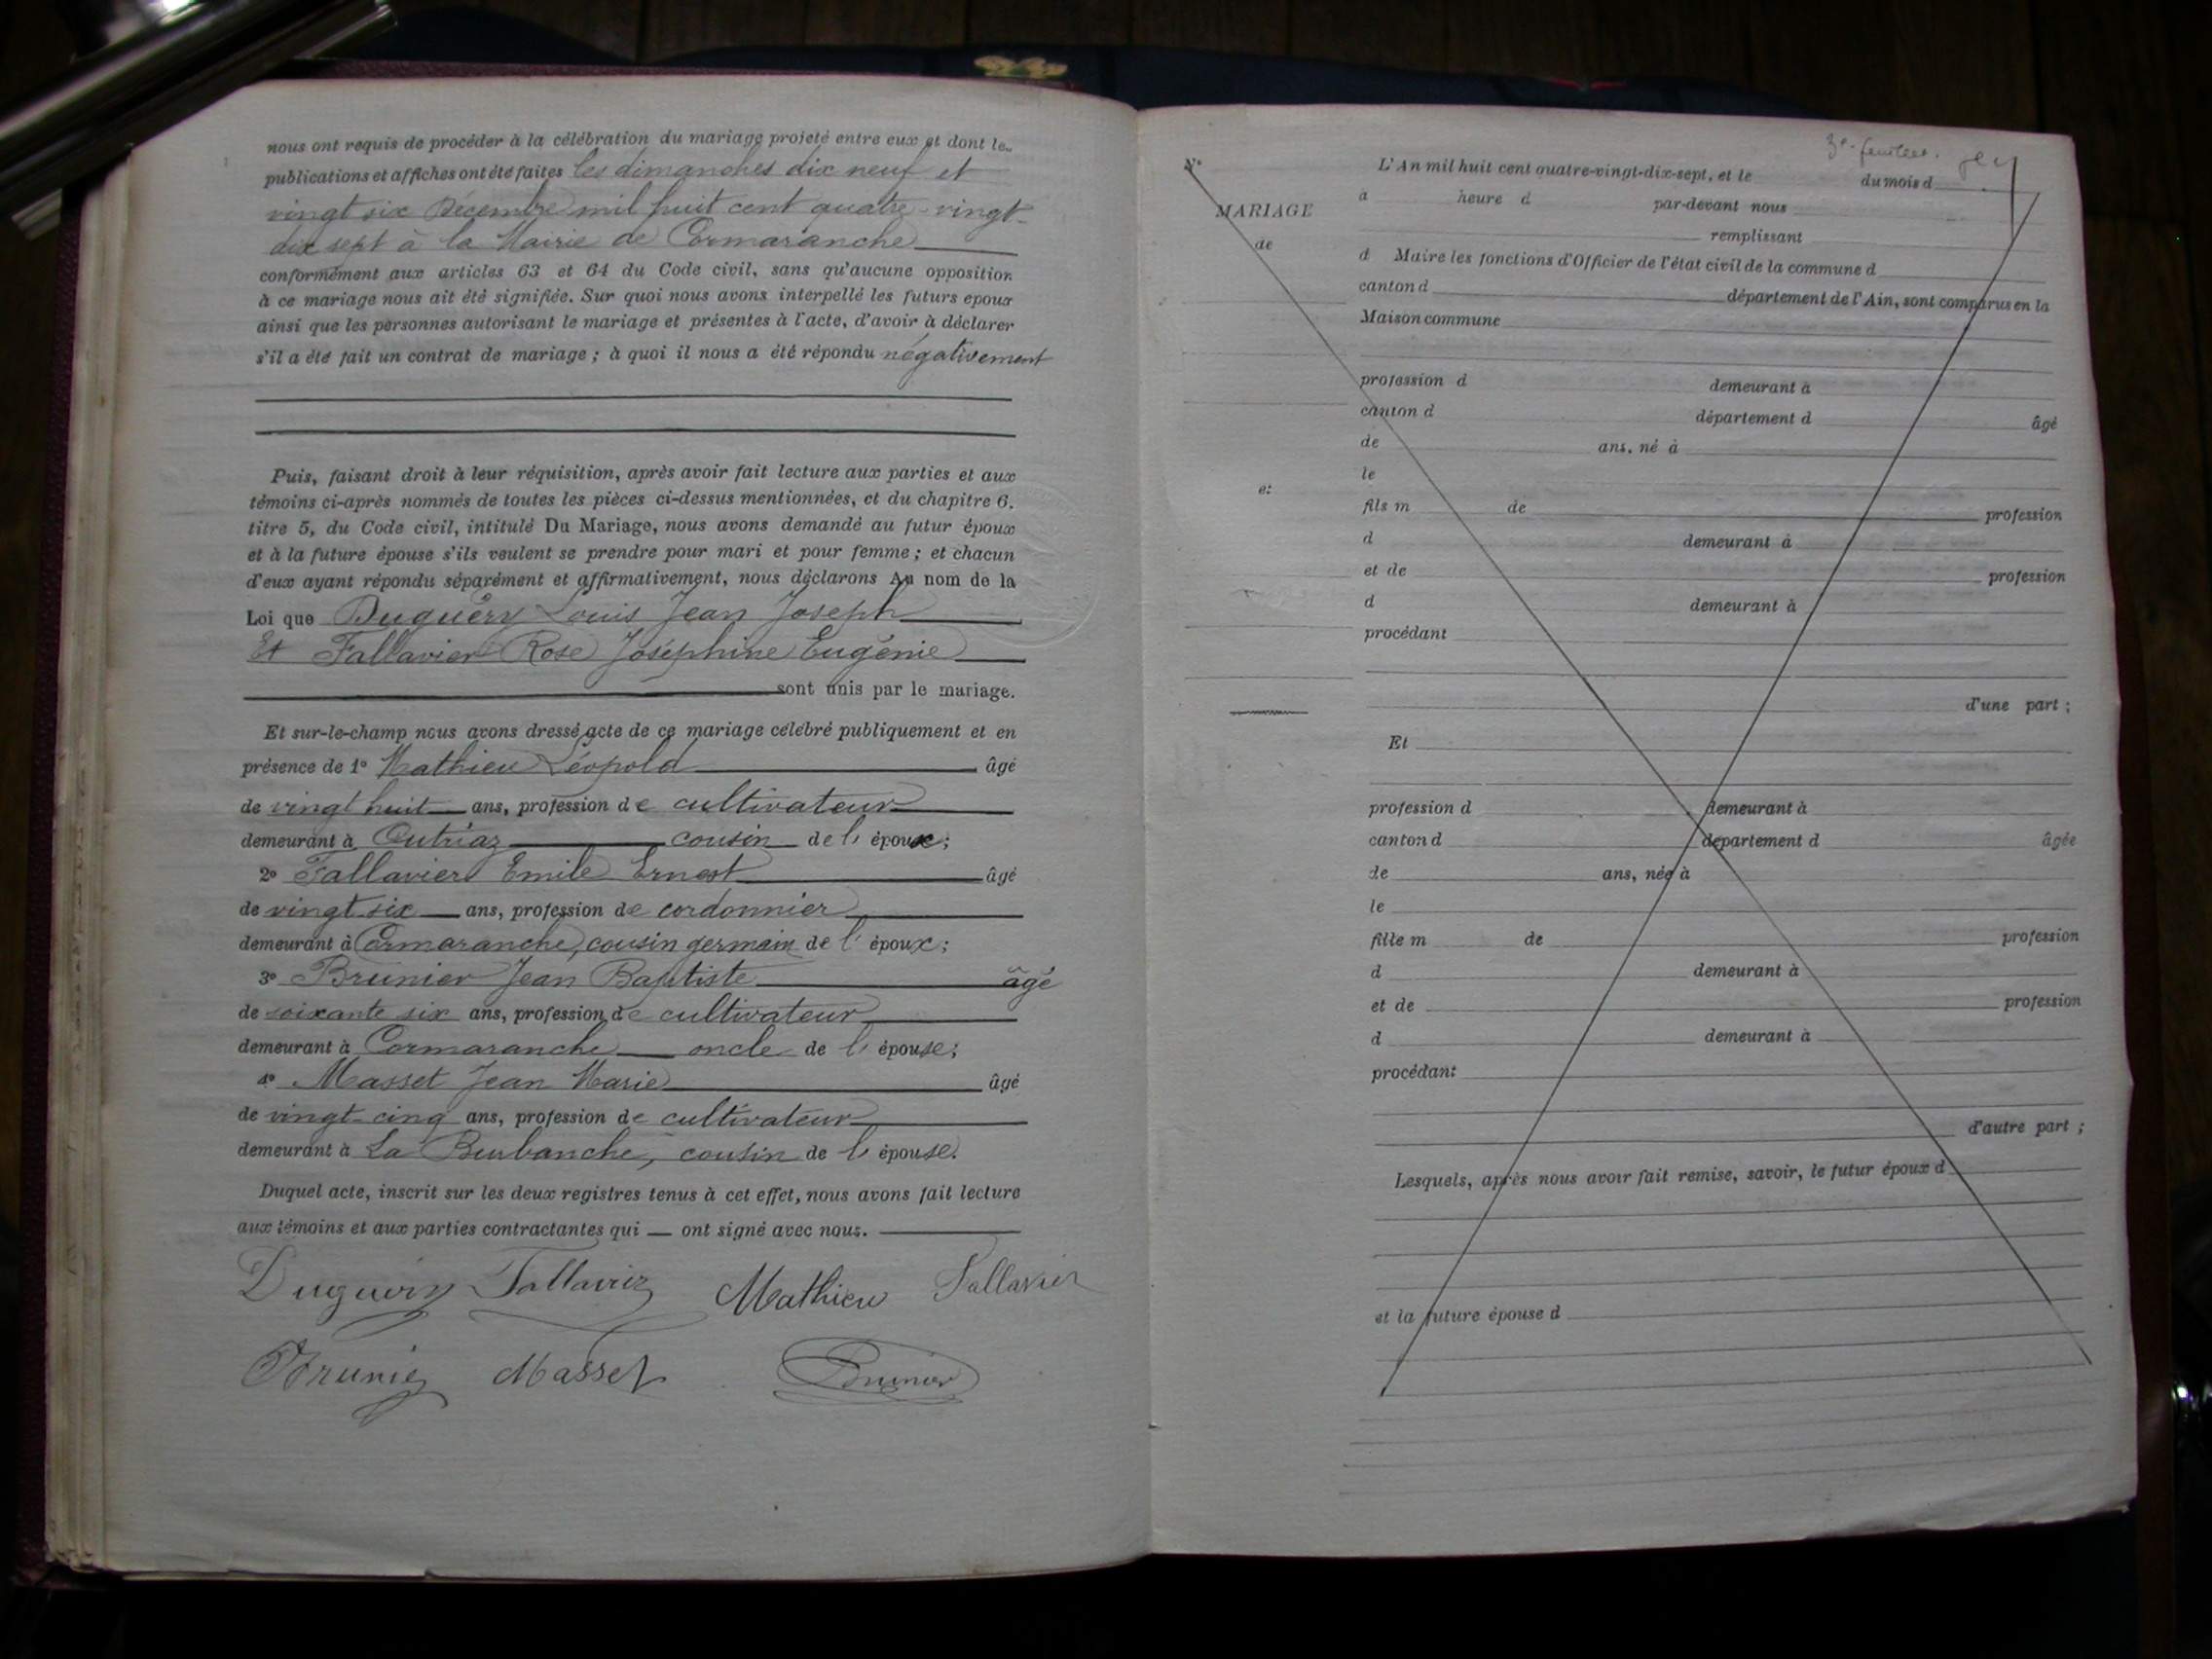 nous ont requis de procéder à la célébration du mariage projeté entre eux et dont les
publications et affiches ont été faites les dimanches dix neuf et
vingt six Décembre mil huit cent quatre-vingt-
dix sept à la Mairie de Cormaranche
conformément aux articles 63 et 64 du Code civil, sans qu'aucune opposition
à ce mariage nous ait été signifiée. Sur quoi nous avons interpellé les futurs epoux
ainsi que les personnes autorisant le mariage et présentes à l'acte, d'avoir à déclarer
s'il a été fait un contrat de mariage ; à quoi il nous a été répondu négativement
Puis, faisant droit à leur réquisition, après avoir fait lecture aux parties et aux
témoins ci-après nommés de toutes les pièces ci-dessus mentionnées, et du chapitre 6.
titre 5, du Code civil, intitulé Du Mariage, nous avons demandé au futur époux
et à la future épouse s'ils veulent se prendre pour mari et pour femme ; et chacun
d'eux ayant répondu séparément et affirmativement, nous déclarons Au nom de la
Loi que Duguéry Louis Jean Joseph
Et Fallavier Rose Joséphine Eugénie
sont unis par le mariage.
Et sur-le-champ nous avons dressé acte de ce mariage célébré publiquement et en
présence de 1° Mathieu Léopold âgé
de vingt huit ans, profession de cultivateur
demeurant à Outriaz cousin de l' époux ;
2° Fallavier Emile Ernest âgé
de vingt six ans, profession de cordonnier
demeurant à Cormaranche, cousin germain de l' époux ;
3° Brunier Jean Baptiste âgé
de soixante six ans, profession de cultivateur
demeurant à Cormaranche oncle de l' épouse ;
4° Masset Jean Marie âgé
de vingt-cinq ans, profession de cultivateur
demeurant à La Burbanche, cousin de l' épouse.
Duquel acte, inscrit sur les deux registres tenus à cet effet, nous avons fait lecture
aux témoins et aux parties contractantes qui — ont signé avec nous.
Mathieu Fallavier
Masset Brunier
3e feuillet.
N°
MARIAGE
de
et
L'An mil huit cent quatre-vingt-dix-sept, et le du mois d
à heure d par-devant nous
remplissant
d Maire les fonctions d'Officier de l'état civil de la commune d
canton d département de l'Ain, sont comparus en la
Maison commune
profession d demeurant à
canton d département d âgé
de ans, né à
le
fils m de profession
d demeurant à
et de profession
d demeurant à
procédant
d'une part ;
Et
profession d demeurant à
canton d département d âgée
de ans, née à
le
fille m de profession
d demeurant à
et de profession
d demeurant à
procédant
d'autre part ;
Lesquels, après nous avoir fait remise, savoir, le futur époux d
et la future épouse d